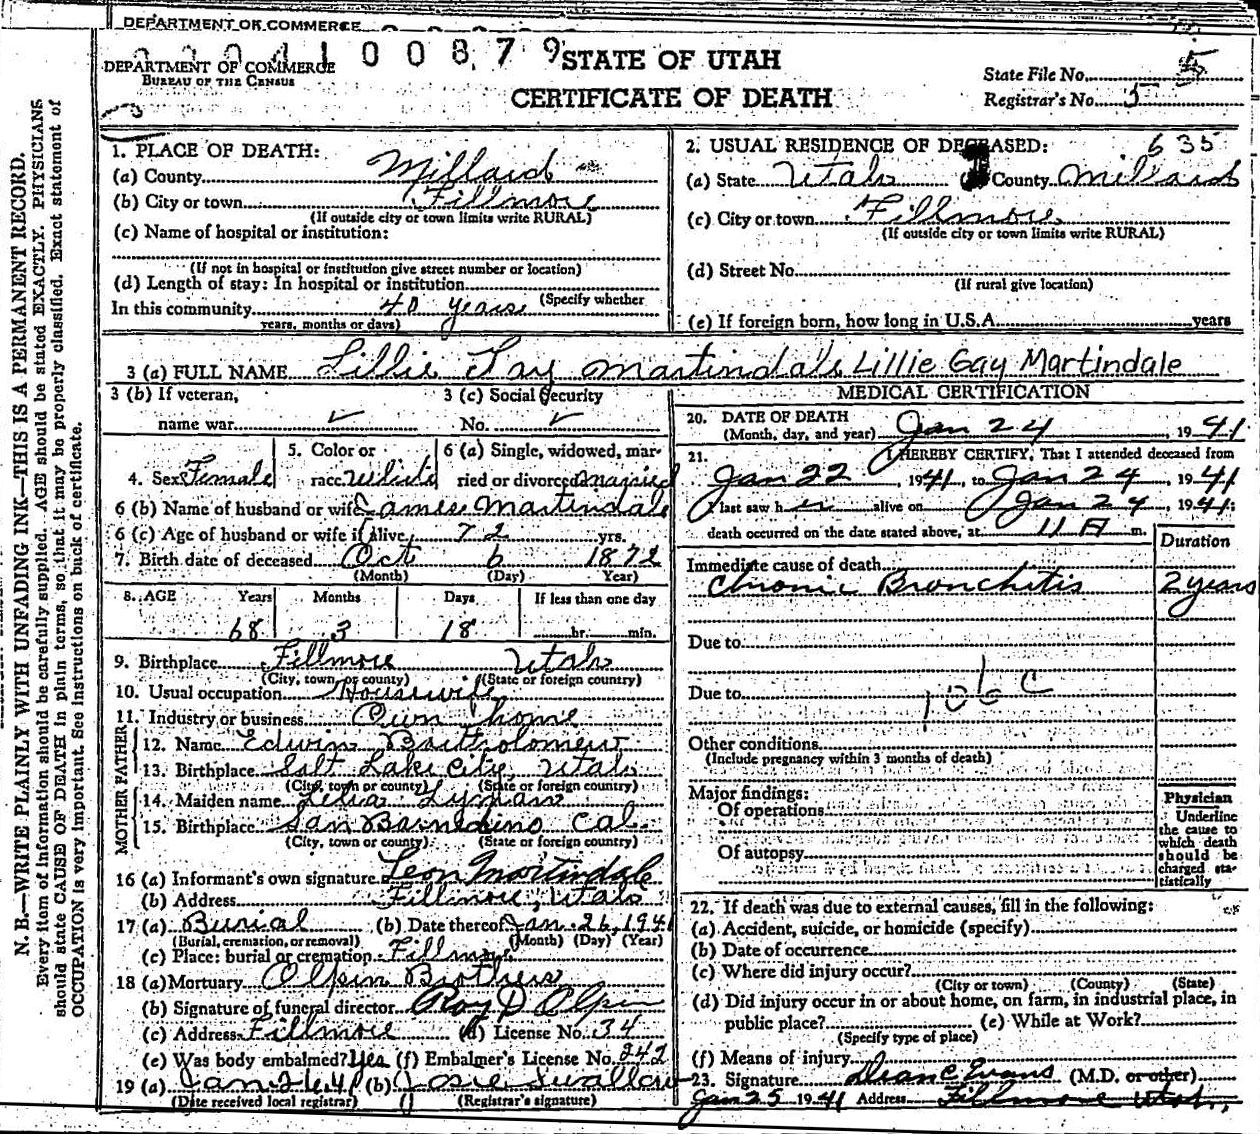 DEPARTMENT OF COMMERCE
100879
STATE OF UTAH
CERTIFICATE OF DEATH
DEPARTMENT OF COMMERCE
BUREAU OF THE CENSUS
State File No. 5
Registrar's No. 5
N. B.—WRITE PLAINLY WITH UNFADING INK—THIS IS A PERMANENT RECORD.
Every item of information should be carefully supplied. AGE should be stated EXACTLY. PHYSICIANS
should state CAUSE OF DEATH in plain terms, so that it may be properly classified. Exact statement of
OCCUPATION is very important. See instructions on back of certificate.
1. PLACE OF DEATH:
(a) County Millard
(b) City or town Fillmore
(If outside city or town limits write RURAL)
(c) Name of hospital or institution:
(If not in hospital or institution give street number or location)
(d) Length of stay: In hospital or institution
(Specify whether
In this community 40 years
years, months or days)
2. USUAL RESIDENCE OF DECEASED: 635
(a) State Utah County Millard
(c) City or town Fillmore
(If outside city or town limits write RURAL)
(d) Street No.
(If rural give location)
(e) If foreign born, how long in U.S.A. years
3 (a) FULL NAME Lillie Gay Martindale Lillie Gay Martindale
3 (b) If veteran,
name war
3 (c) Social Security
No.
4. Sex Female
5. Color or
race White
6 (a) Single, widowed, mar-
ried or divorced married
6 (b) Name of husband or wife James Martindale
6 (c) Age of husband or wife if alive 72 yrs.
7. Birth date of deceased Oct 6 1872
(Month) (Day) Year)
8. AGE Years Months Days If less than one day
68 3 18 hr. min.
9. Birthplace Fillmore Utah
(City, town or county) (State or foreign country)
10. Usual occupation Housewife
11. Industry or business Own home
FATHER
12. Name Edwin Bartholomew
13. Birthplace Salt Lake City, Utah
(City, town or county) (State or foreign country)
MOTHER
14. Maiden name Lyman
15. Birthplace San Barnedino Cal.
(City, town or county) (State or foreign country)
16 (a) Informant's own signature Leon Martindale
(b) Address Fillmore, Utah
17 (a) Burial (b) Date thereof Jan. 26, 1941
(Burial, cremation, or removal) (Month) (Day) (Year)
(c) Place: burial or cremation Fillmore
18 (a) Mortuary Olpin Brothers
(b) Signature of funeral director Roy D Olpin
(c) Address Fillmore (d) License No. 34
(e) Was body embalmed? Yes (f) Embalmer's License No. 242
19 (a) Jan 26 41 (b) Josie Swallow
(Date received local registrar) (Registrar's signature)
MEDICAL CERTIFICATION
20. DATE OF DEATH
(Month, day, and year) Jan 24, 1941
21. I HEREBY CERTIFY, That I attended deceased from
Jan 22, 1941, to Jan 24, 1941
I last saw her alive on Jan 24, 1941;
death occurred on the date stated above, at 11 A m.
Duration
Immediate cause of death
Chronic Bronchitis 2 years
Due to
Due to 106c
Other conditions
(Include pregnancy within 3 months of death)
Major findings:
Of operations
Of autopsy
Physician
Underline
the cause to
which death
should be
charged sta-
tistically
22. If death was due to external causes, fill in the following:
(a) Accident, suicide, or homicide (specify)
(b) Date of occurrence
(c) Where did injury occur?
(City or town) (County) (State)
(d) Did injury occur in or about home, on farm, in industrial place, in
public place? (e) While at Work?
(Specify type of place)
(f) Means of injury
23. Signature Dean C Evans (M.D. or other)
Jan 25 1941 Address Fillmore Utah.